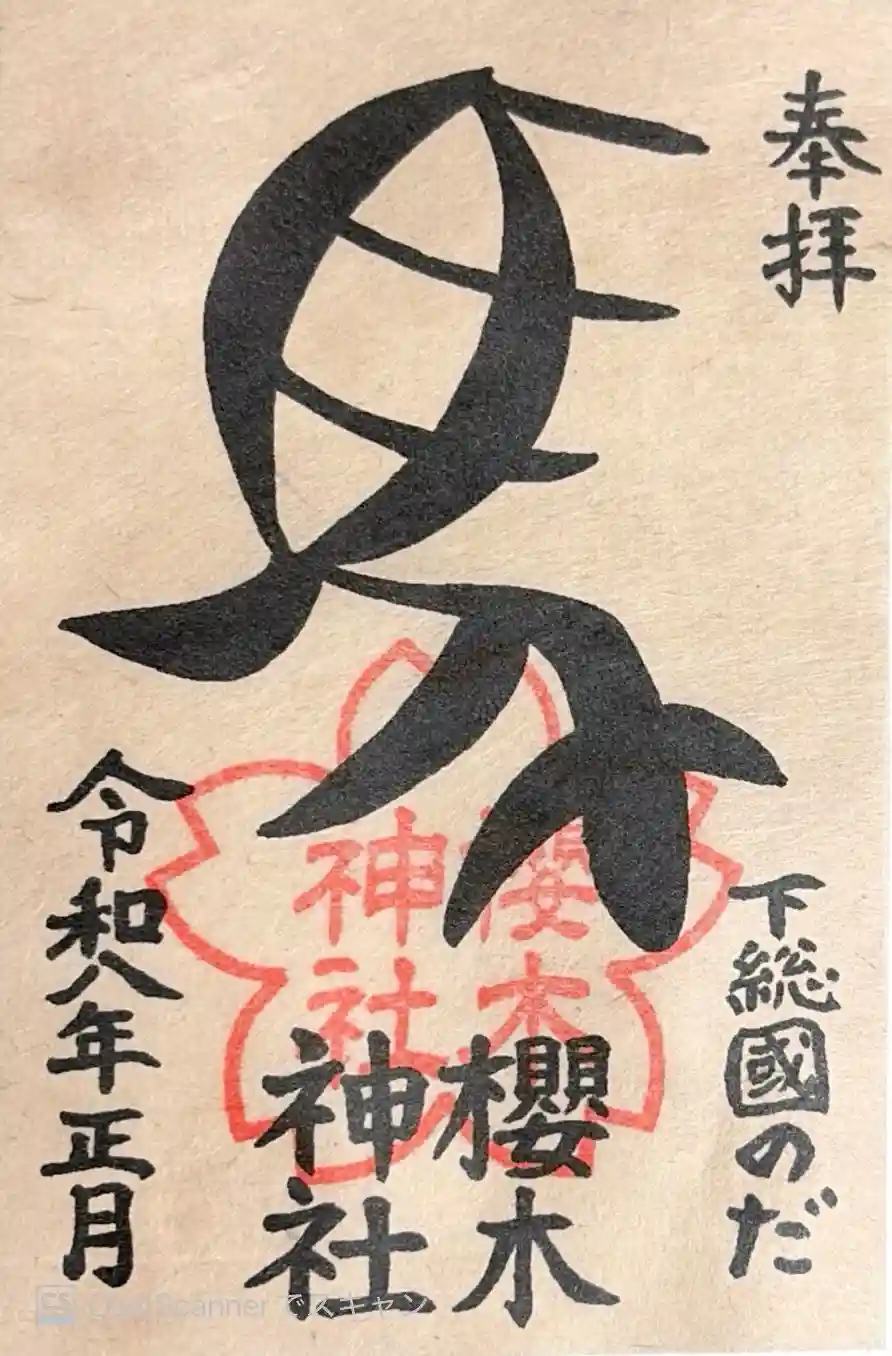 奉拝
下総國のだ
櫻木
神社
櫻木
神社
令和八年正月
CS CamScanner でスキャン